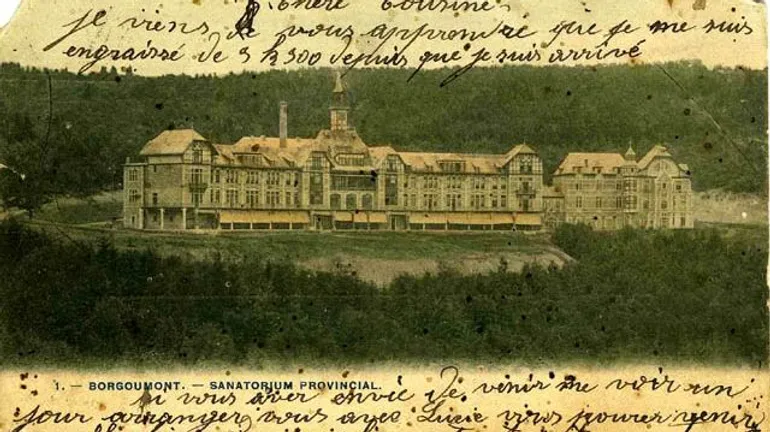 chère cousine
je viens de vous apprendre que je me suis
engraissé de 3 k 500 depuis que je suis arrivé
1. — BORGOUMONT. — SANATORIUM PROVINCIAL.
si vous aver envie de venir me voir un
jour arranger vous avec Lucie vous pourer venir